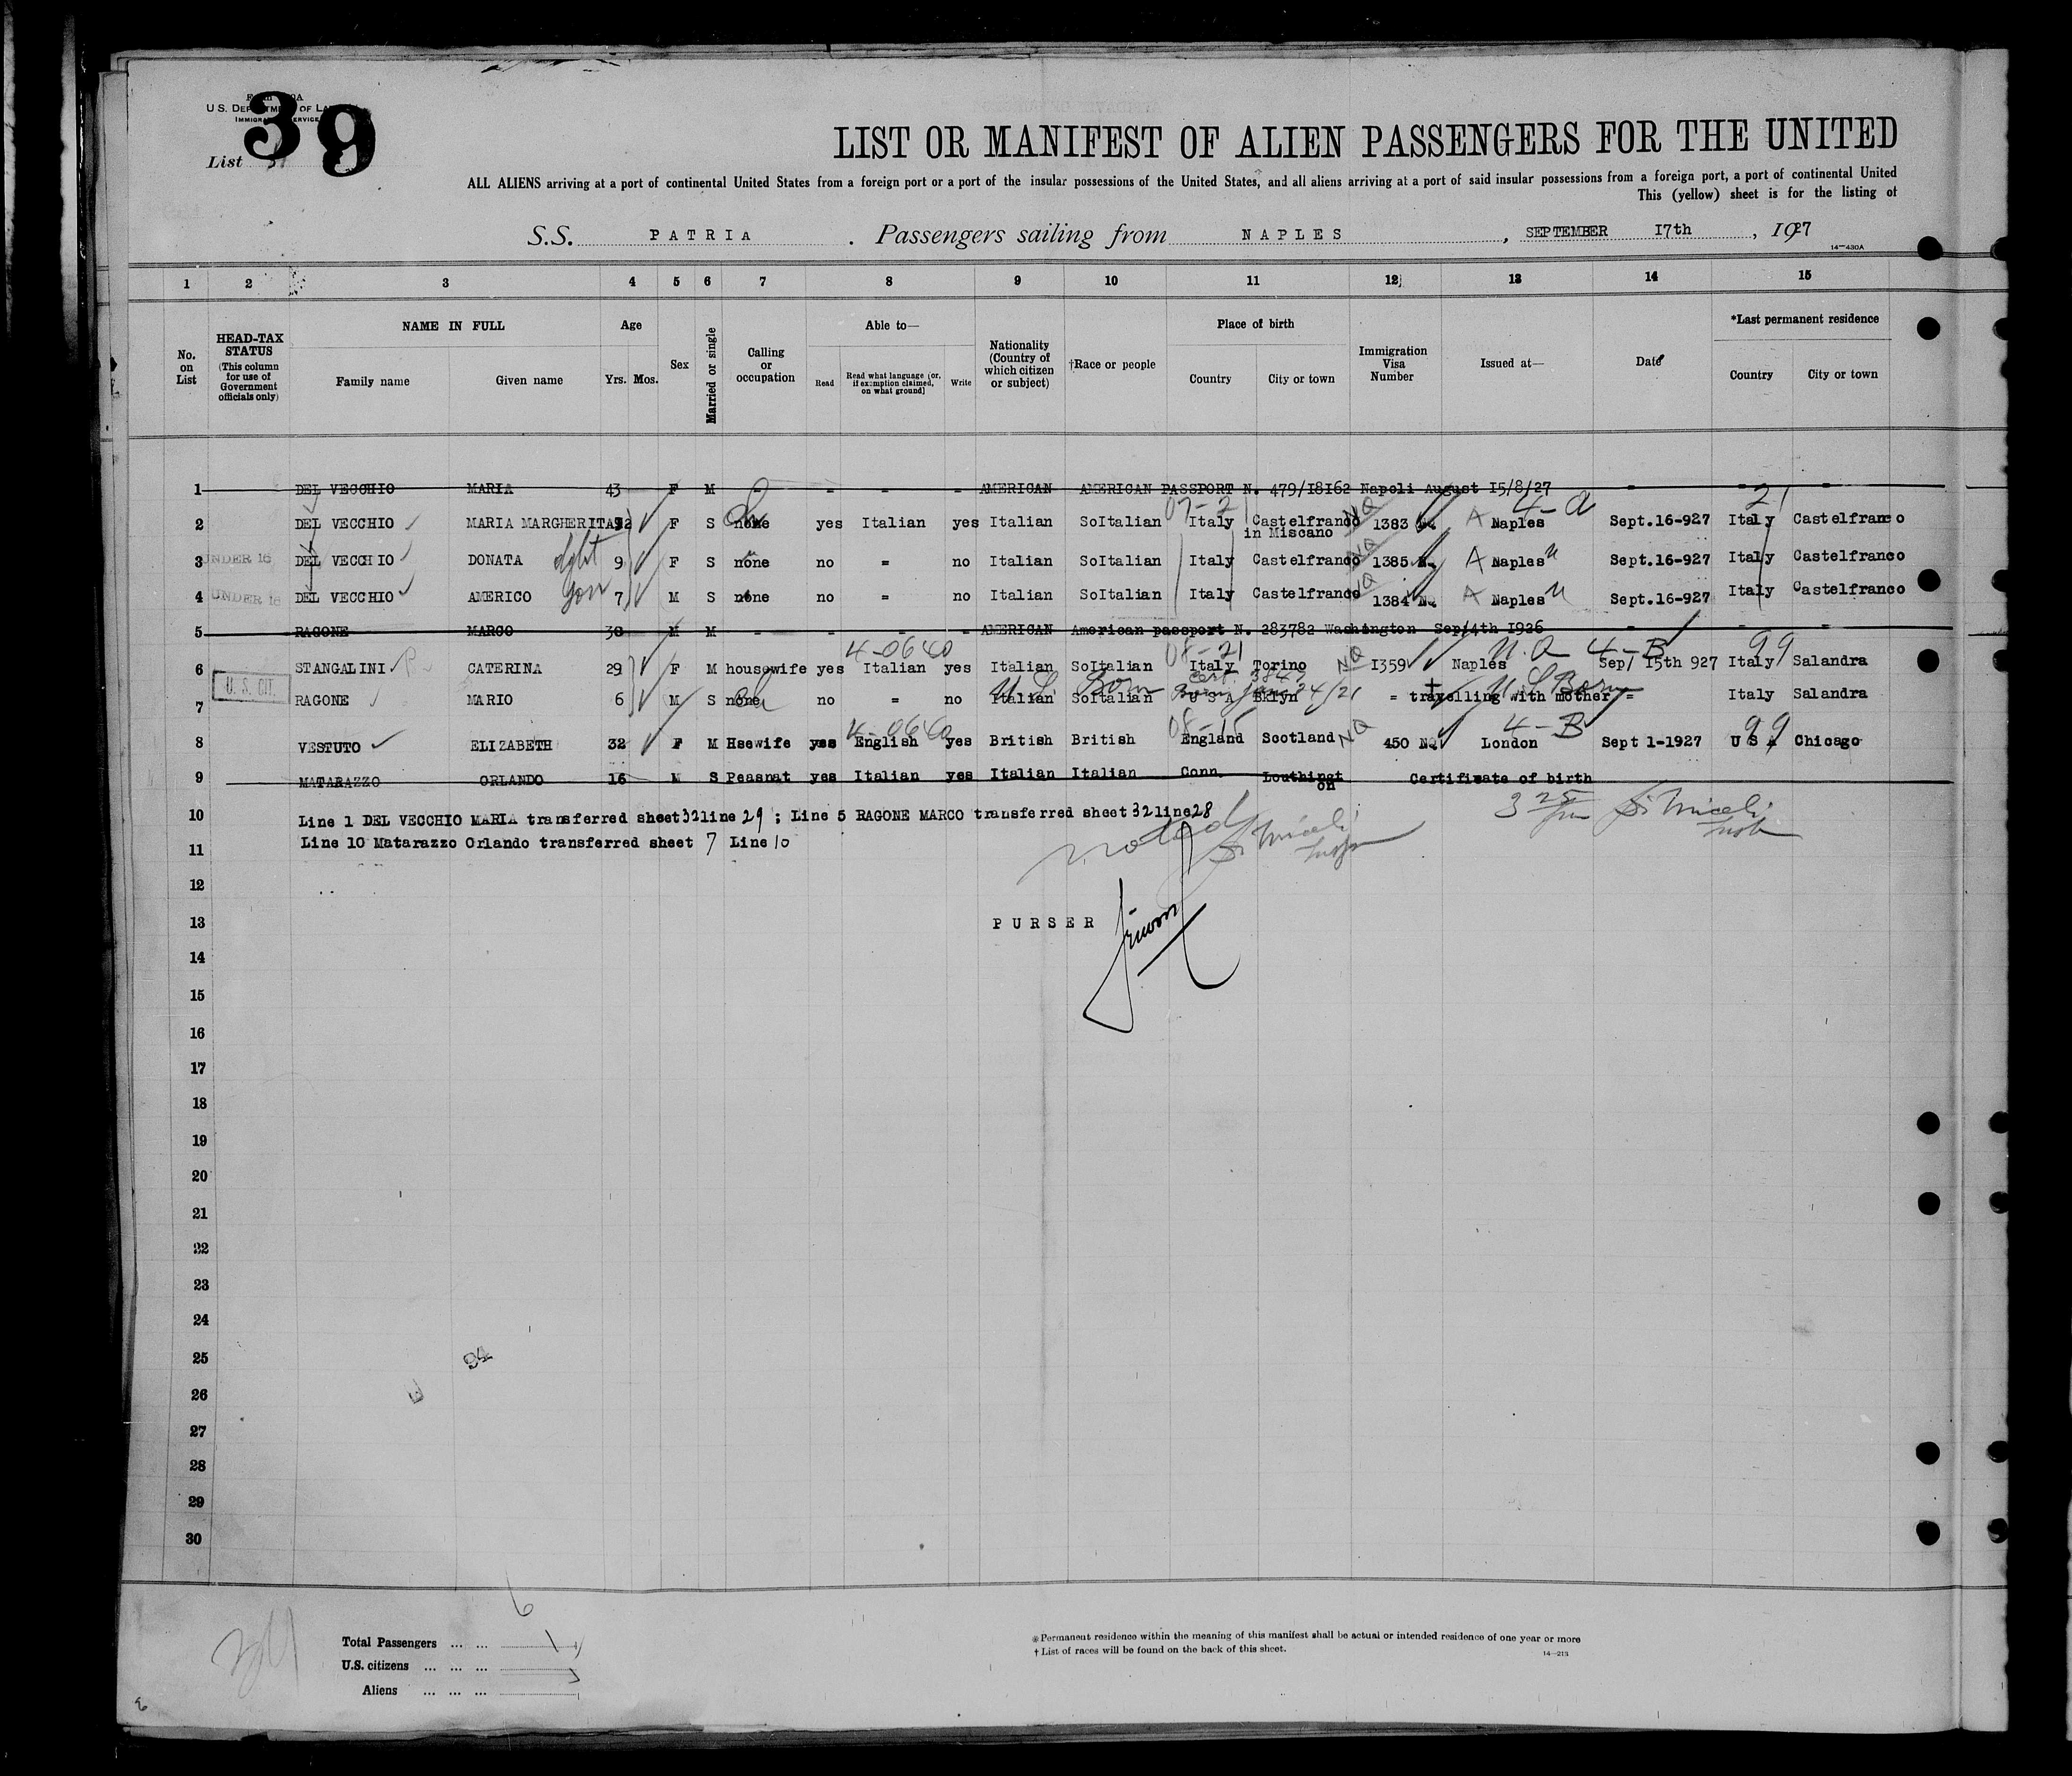 39
U.S. DEPARTMENT OF LABOR
IMMIGRATION SERVICE
List
LIST OR MANIFEST OF ALIEN PASSENGERS FOR THE UNITED
ALL ALIENS arriving at a port of continental United States from a foreign port or a port of the insular possessions of the United States, and all aliens arriving at a port of said insular possessions from a foreign port, a port of continental United
This (yellow) sheet is for the listing of
S.S. PATRIA . Passengers sailing from NAPLES , SEPTEMBER 17th , 1927
14—430A
1 2 3 4 5 6 7 8 9 10 11 12 13 14 15
No. on List
HEAD-TAX STATUS (This column for use of Government officials only)
NAME IN FULL
Family name Given name
Age
Yrs. Mos.
Sex
Married or single
Calling or occupation
Able to—
Read Read what language [or, if exemption claimed, on what ground] Write
Nationality (Country of which citizen or subject)
†Race or people
Place of birth
Country City or town
Immigration Visa Number
Issued at—
Date
*Last permanent residence
Country City or town
1 DEL VECCHIO MARIA 43 F M - - - AMERICAN AMERICAN PASSPORT N. 479/18162 Napoli August 15/8/27 - - -
2 DEL VECCHIO MARIA MARGHERITA F S none yes Italian yes Italian SoItalian 07-21 Italy Castelfranco in Miscano NQ 1383 NQ A Naples 4-a Sept.16-927 21 Italy Castelfranco
3 UNDER 16 DEL VECCHIO DONATA dght 9 F S none no = no Italian SoItalian Italy Castelfranco NQ 1385 A Naples Sept.16-927 Italy Castelfranco
4 UNDER 16 DEL VECCHIO AMERICO son 7 M S none no = no Italian SoItalian Italy Castelfranco NQ 1384 NQ A Naples Sept.16-927 Italy Castelfranco
5 RAGONE MARCO 38 M M - - - - AMERICAN American passport N. 283782 Washington Sep/4th 1926 - - -
6 STANGALINI CATERINA 29 F M housewife yes 4-0640 Italian yes Italian SoItalian 08-21 Italy Torino NQ 1359 Naples 4-B Sep/ 15th 927 99 Italy Salandra
U.S. CIT.
7 RAGONE MARIO 6 M S none no = no Italian U.S. Born SoItalian Cert. 3843 Born June 24/21 U S A Bklyn = travelling with mother = U.S Born Italy Salandra
8 VESTUTO ELIZABETH 32 F M Hsewife yes 4-0640 English yes British British 08-15 England Scotland NQ 450 NQ London 4-B Sept 1-1927 99 U S A Chicago
9 MATARAZZO ORLANDO 16 M S Peasnat yes Italian yes Italian Italian Conn. Louthingt on Certifiate of birth
10 Line 1 DEL VECCHIO MARIA transferred sheet 32 line 29 ; Line 5 RAGONE MARCO transferred sheet 32 line 28
11 Line 10 Matarazzo Orlando transferred sheet 7 Line 10
noted
12
13 PURSER
14
15
16
17
18
19
20
21
22
23
24
25
94
26
27
28
29
30
6
Total Passengers
U.S. citizens
Aliens
*Permanent residence within the meaning of this manifest shall be actual or intended residence of one year or more
† List of races will be found on the back of this sheet.
14—213